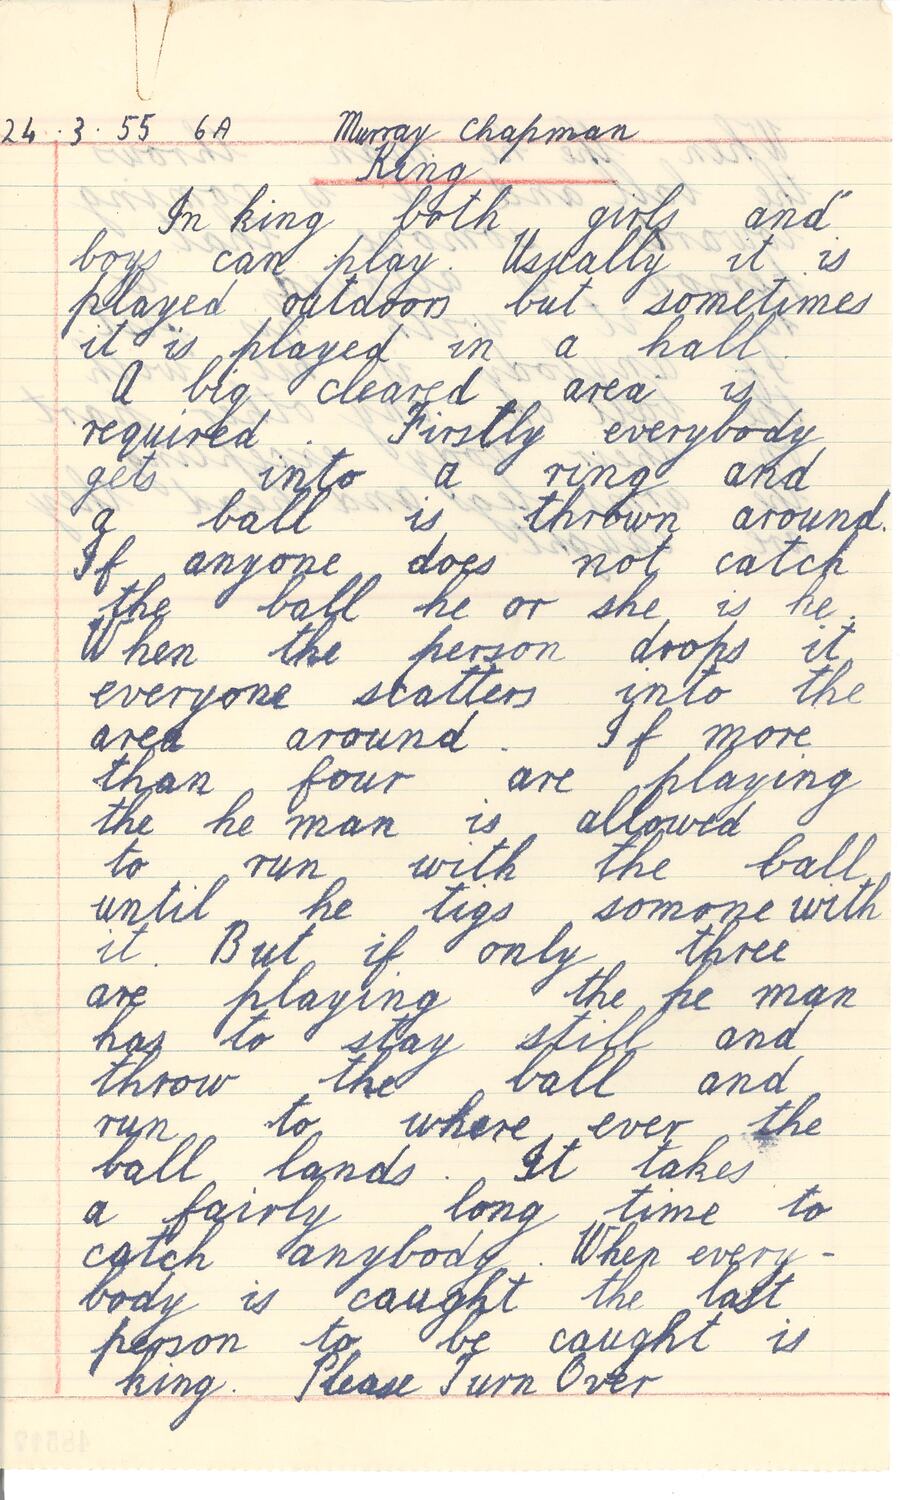 24.3.55 6A Murray Chapman
King
In king both girls and
boys can play. Usually it is
played outdoors but sometimes
it is played in a hall.
A big cleared area is
required. Firstly everybody
gets into a ring and
a ball is thrown around.
If anyone does not catch
the ball he or she is he.
When the person drops it
everyone scatters into the
area around. If more
than four are playing
the he man is allowed
to run with the ball
until he tigs somone with
it. But if only three
are playing the he man
has to stay still and
throw the ball and
run to where ever the
ball lands. It takes
a fairly long time to
catch anybody. When every-
body is caught the last
person to be caught is
king. Please Turn Over